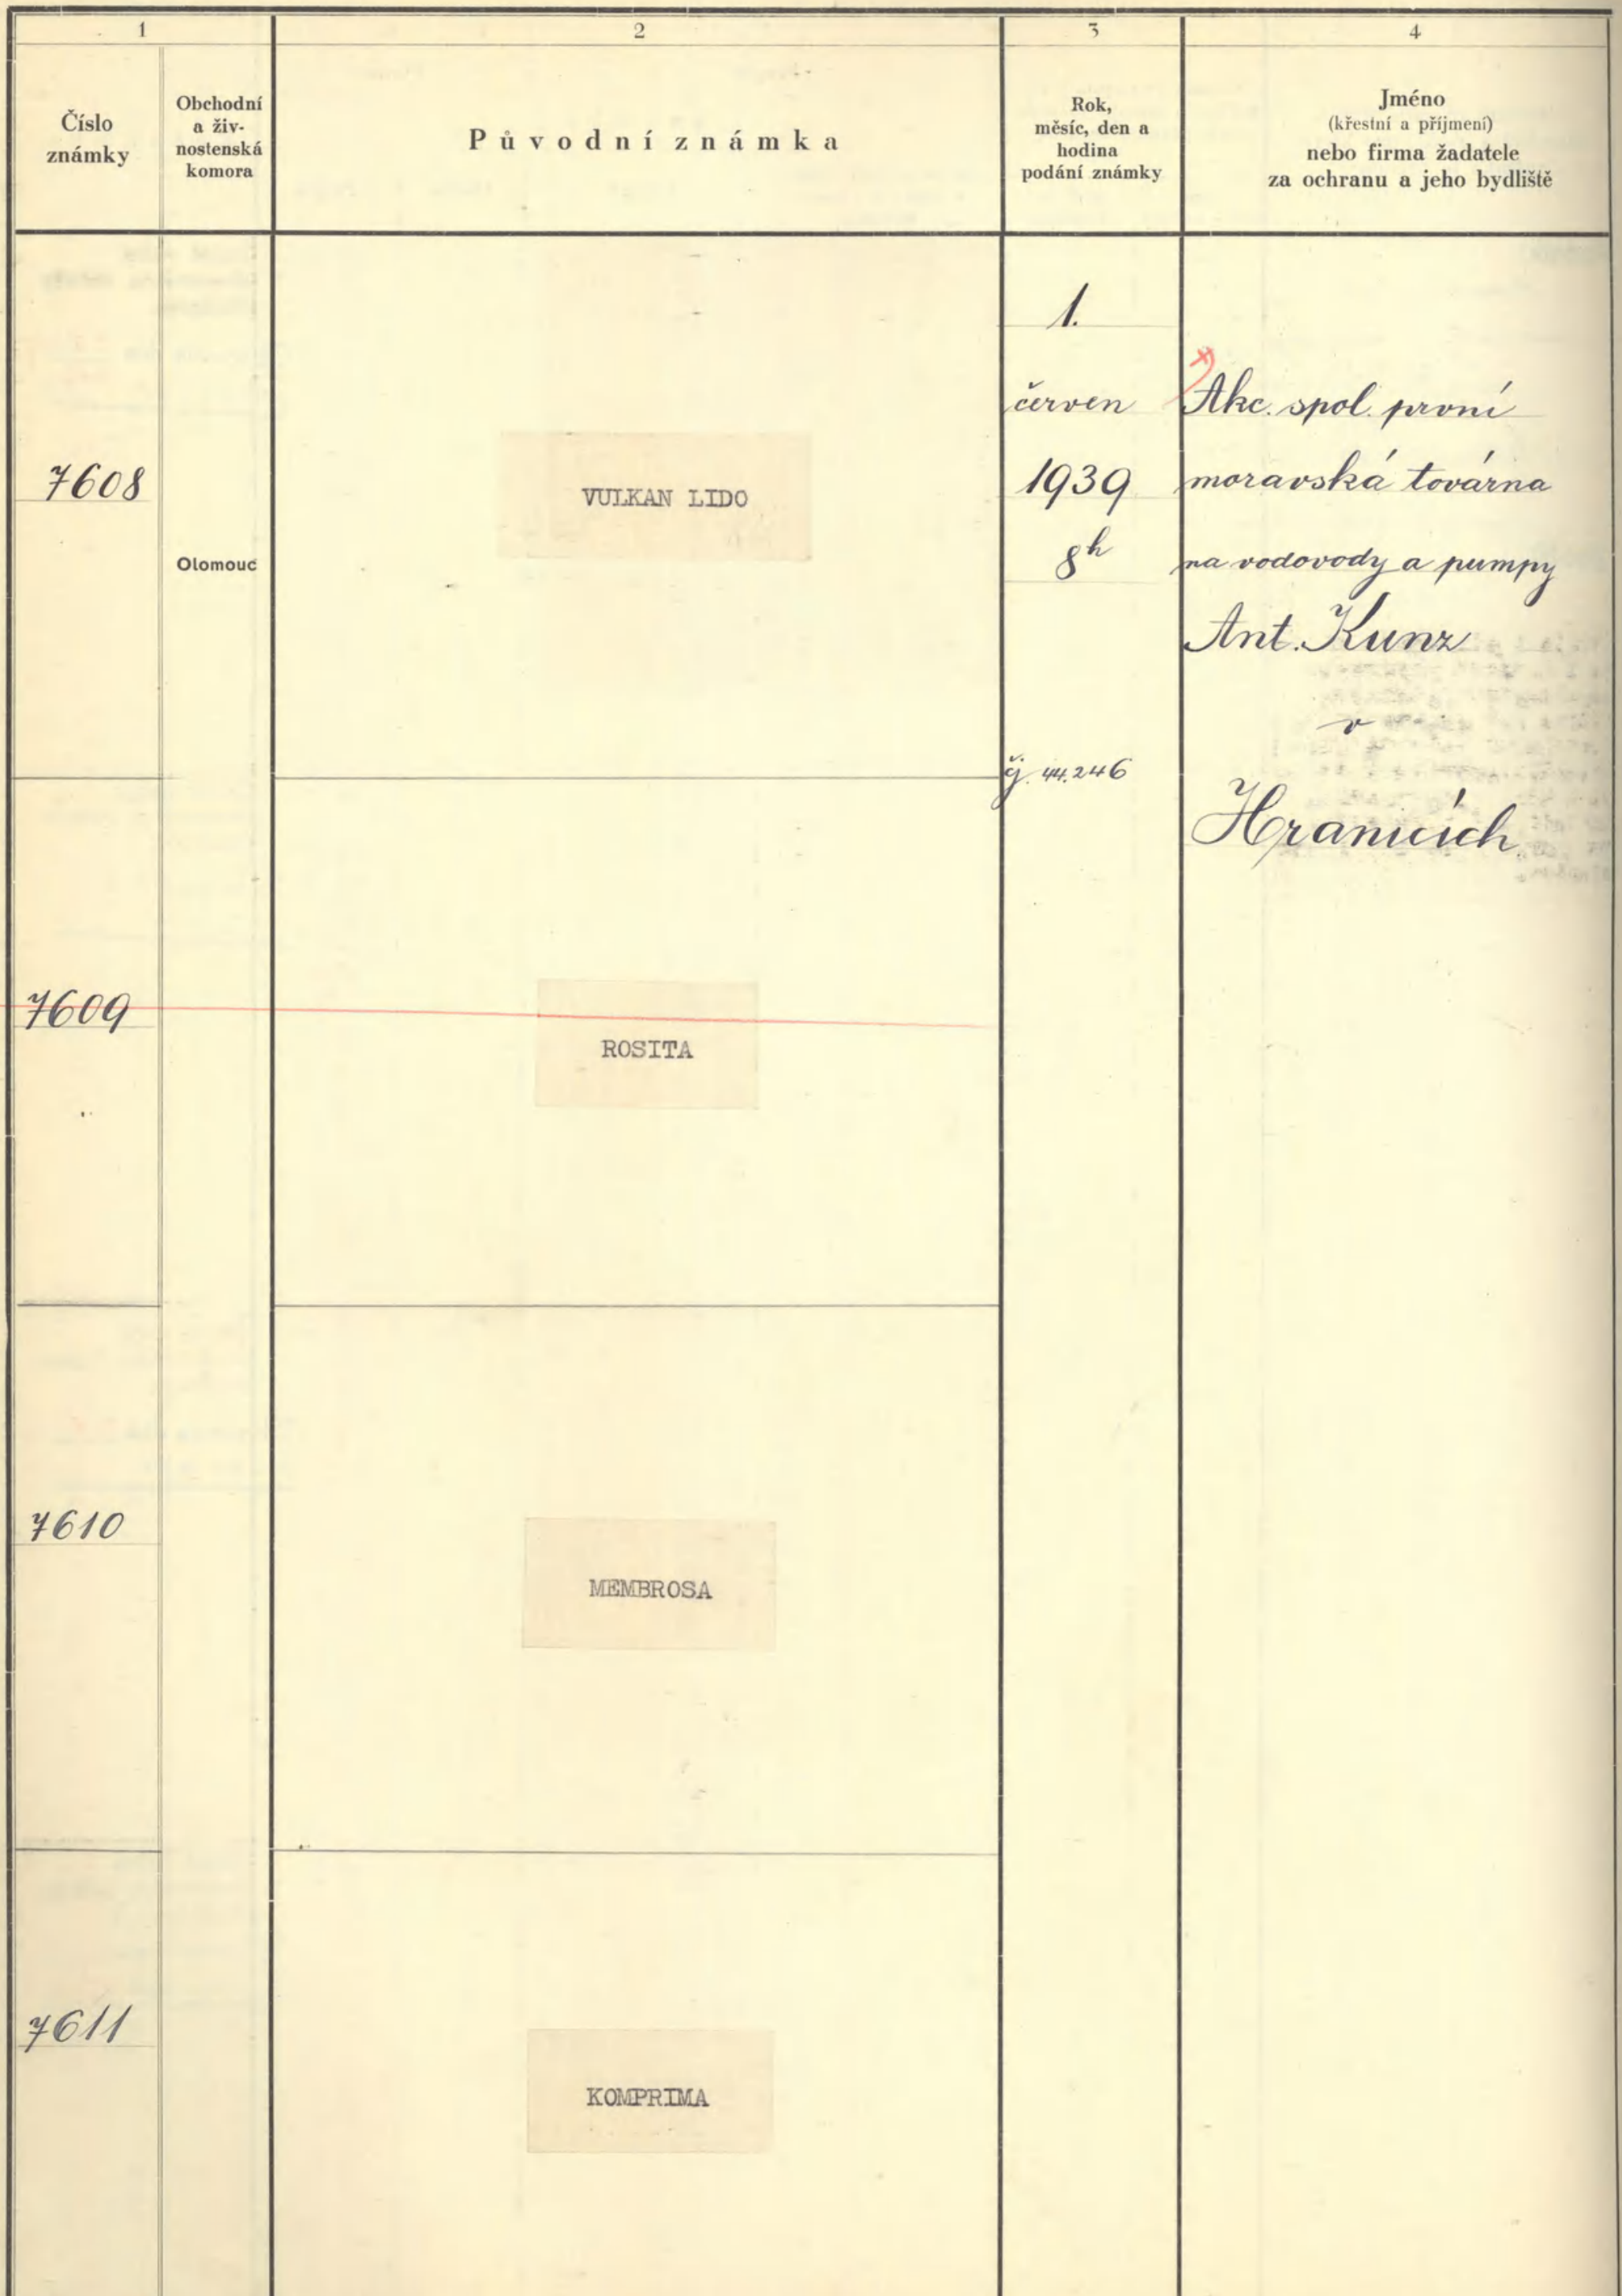 1
2
3
4
Číslo
známky
Obchodní
a živ-
nostenská
komora
Původní známka
Rok,
měsíc, den a
hodina
podání známky
Jméno
(křestní a příjmení)
nebo firma žadatele
za ochranu a jeho bydliště
7608
Olomouc
VULKAN LIDO
1.
červen
1939
8h
čj. 44.246
Akc. spol. první
moravská továrna
na vodovody a pumpy
Ant. Kunz
v
Hranicích
7609
ROSITA
7610
MEMBROSA
7611
KOMPRIMA